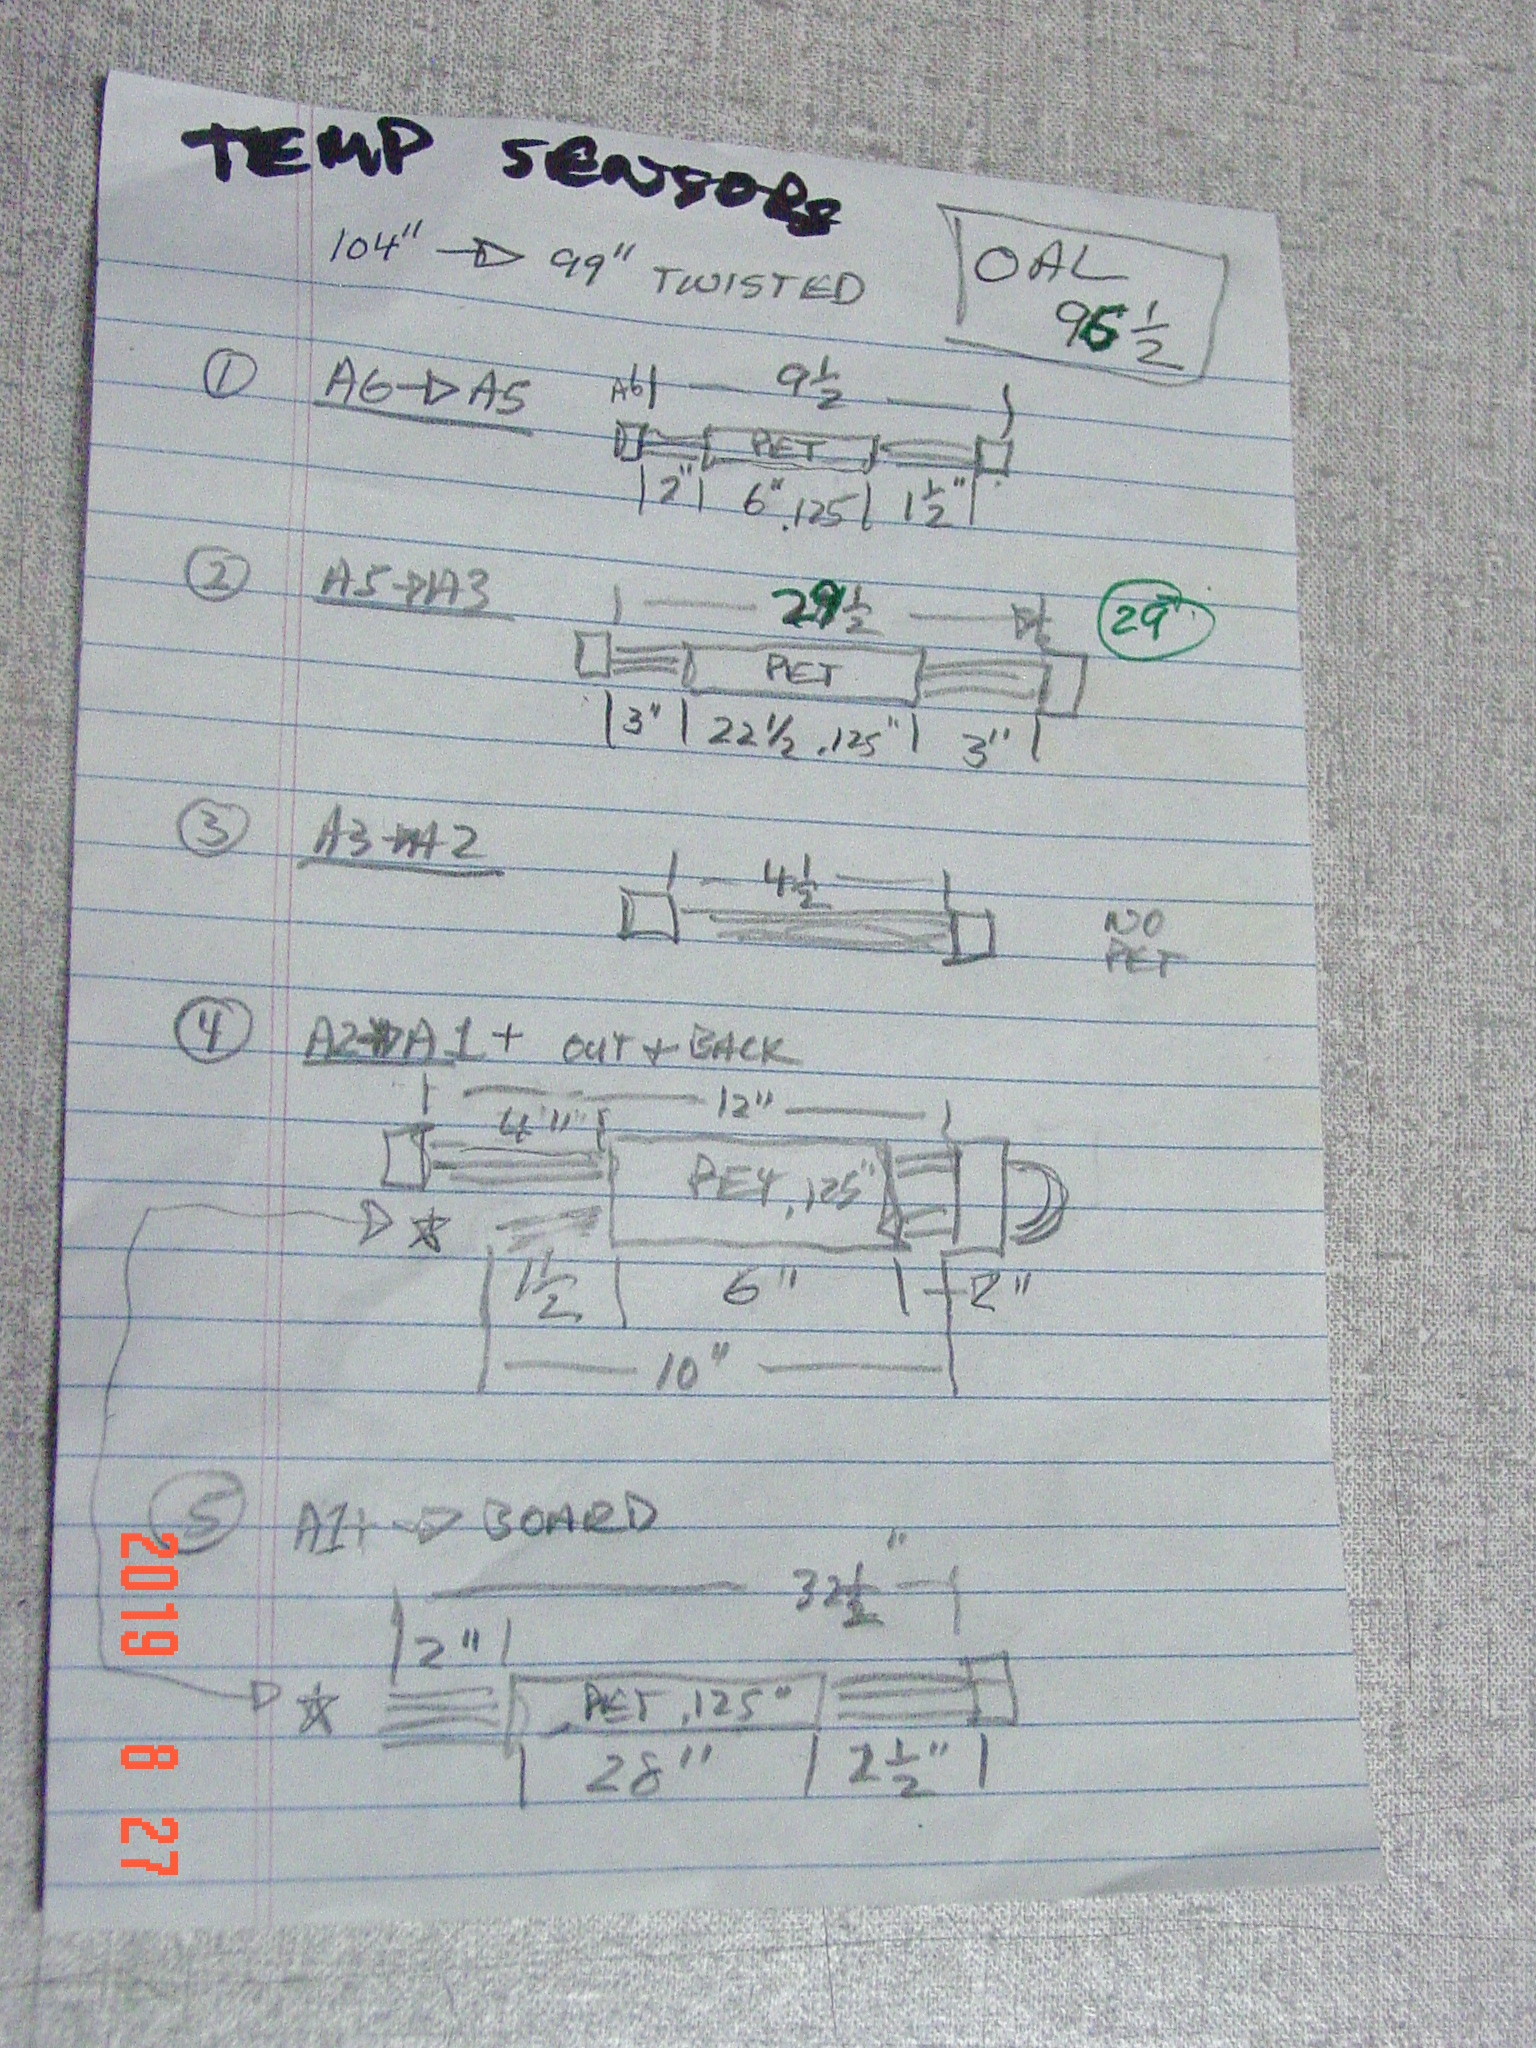 TEMP SENSORS
104" → 99" TWISTED
OAL
95 1/2
① A6→A5
A6 9 1/2
PET
2" 6" .125 1 1/2"
② A5→A3
29 1/2
29"
PET
3" 22 1/2 .125" 3"
③ A3→A2
4 1/2
NO
PET
④ A2→A1+ OUT + BACK
12"
4"
PET, .125"
☆
1 1/2 6" 2"
10"
⑤ A1+ → BOARD
32 1/2"
2"
☆ PET .125"
28" 2 1/2"
2019 8 27